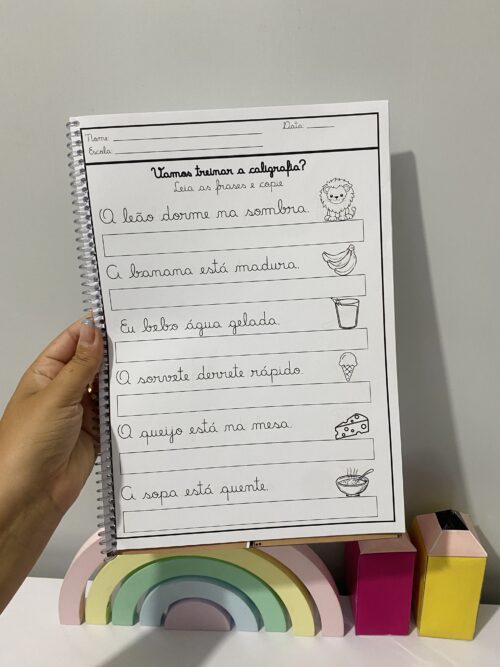 Nome: Data:
Escola:
Vamos treinar a caligrafia?
Leia as frases e copie
O leão dorme na sombra.
A banana está madura.
Eu bebo água gelada.
O sorvete derrete rápido.
O queijo está na mesa.
A sopa está quente.